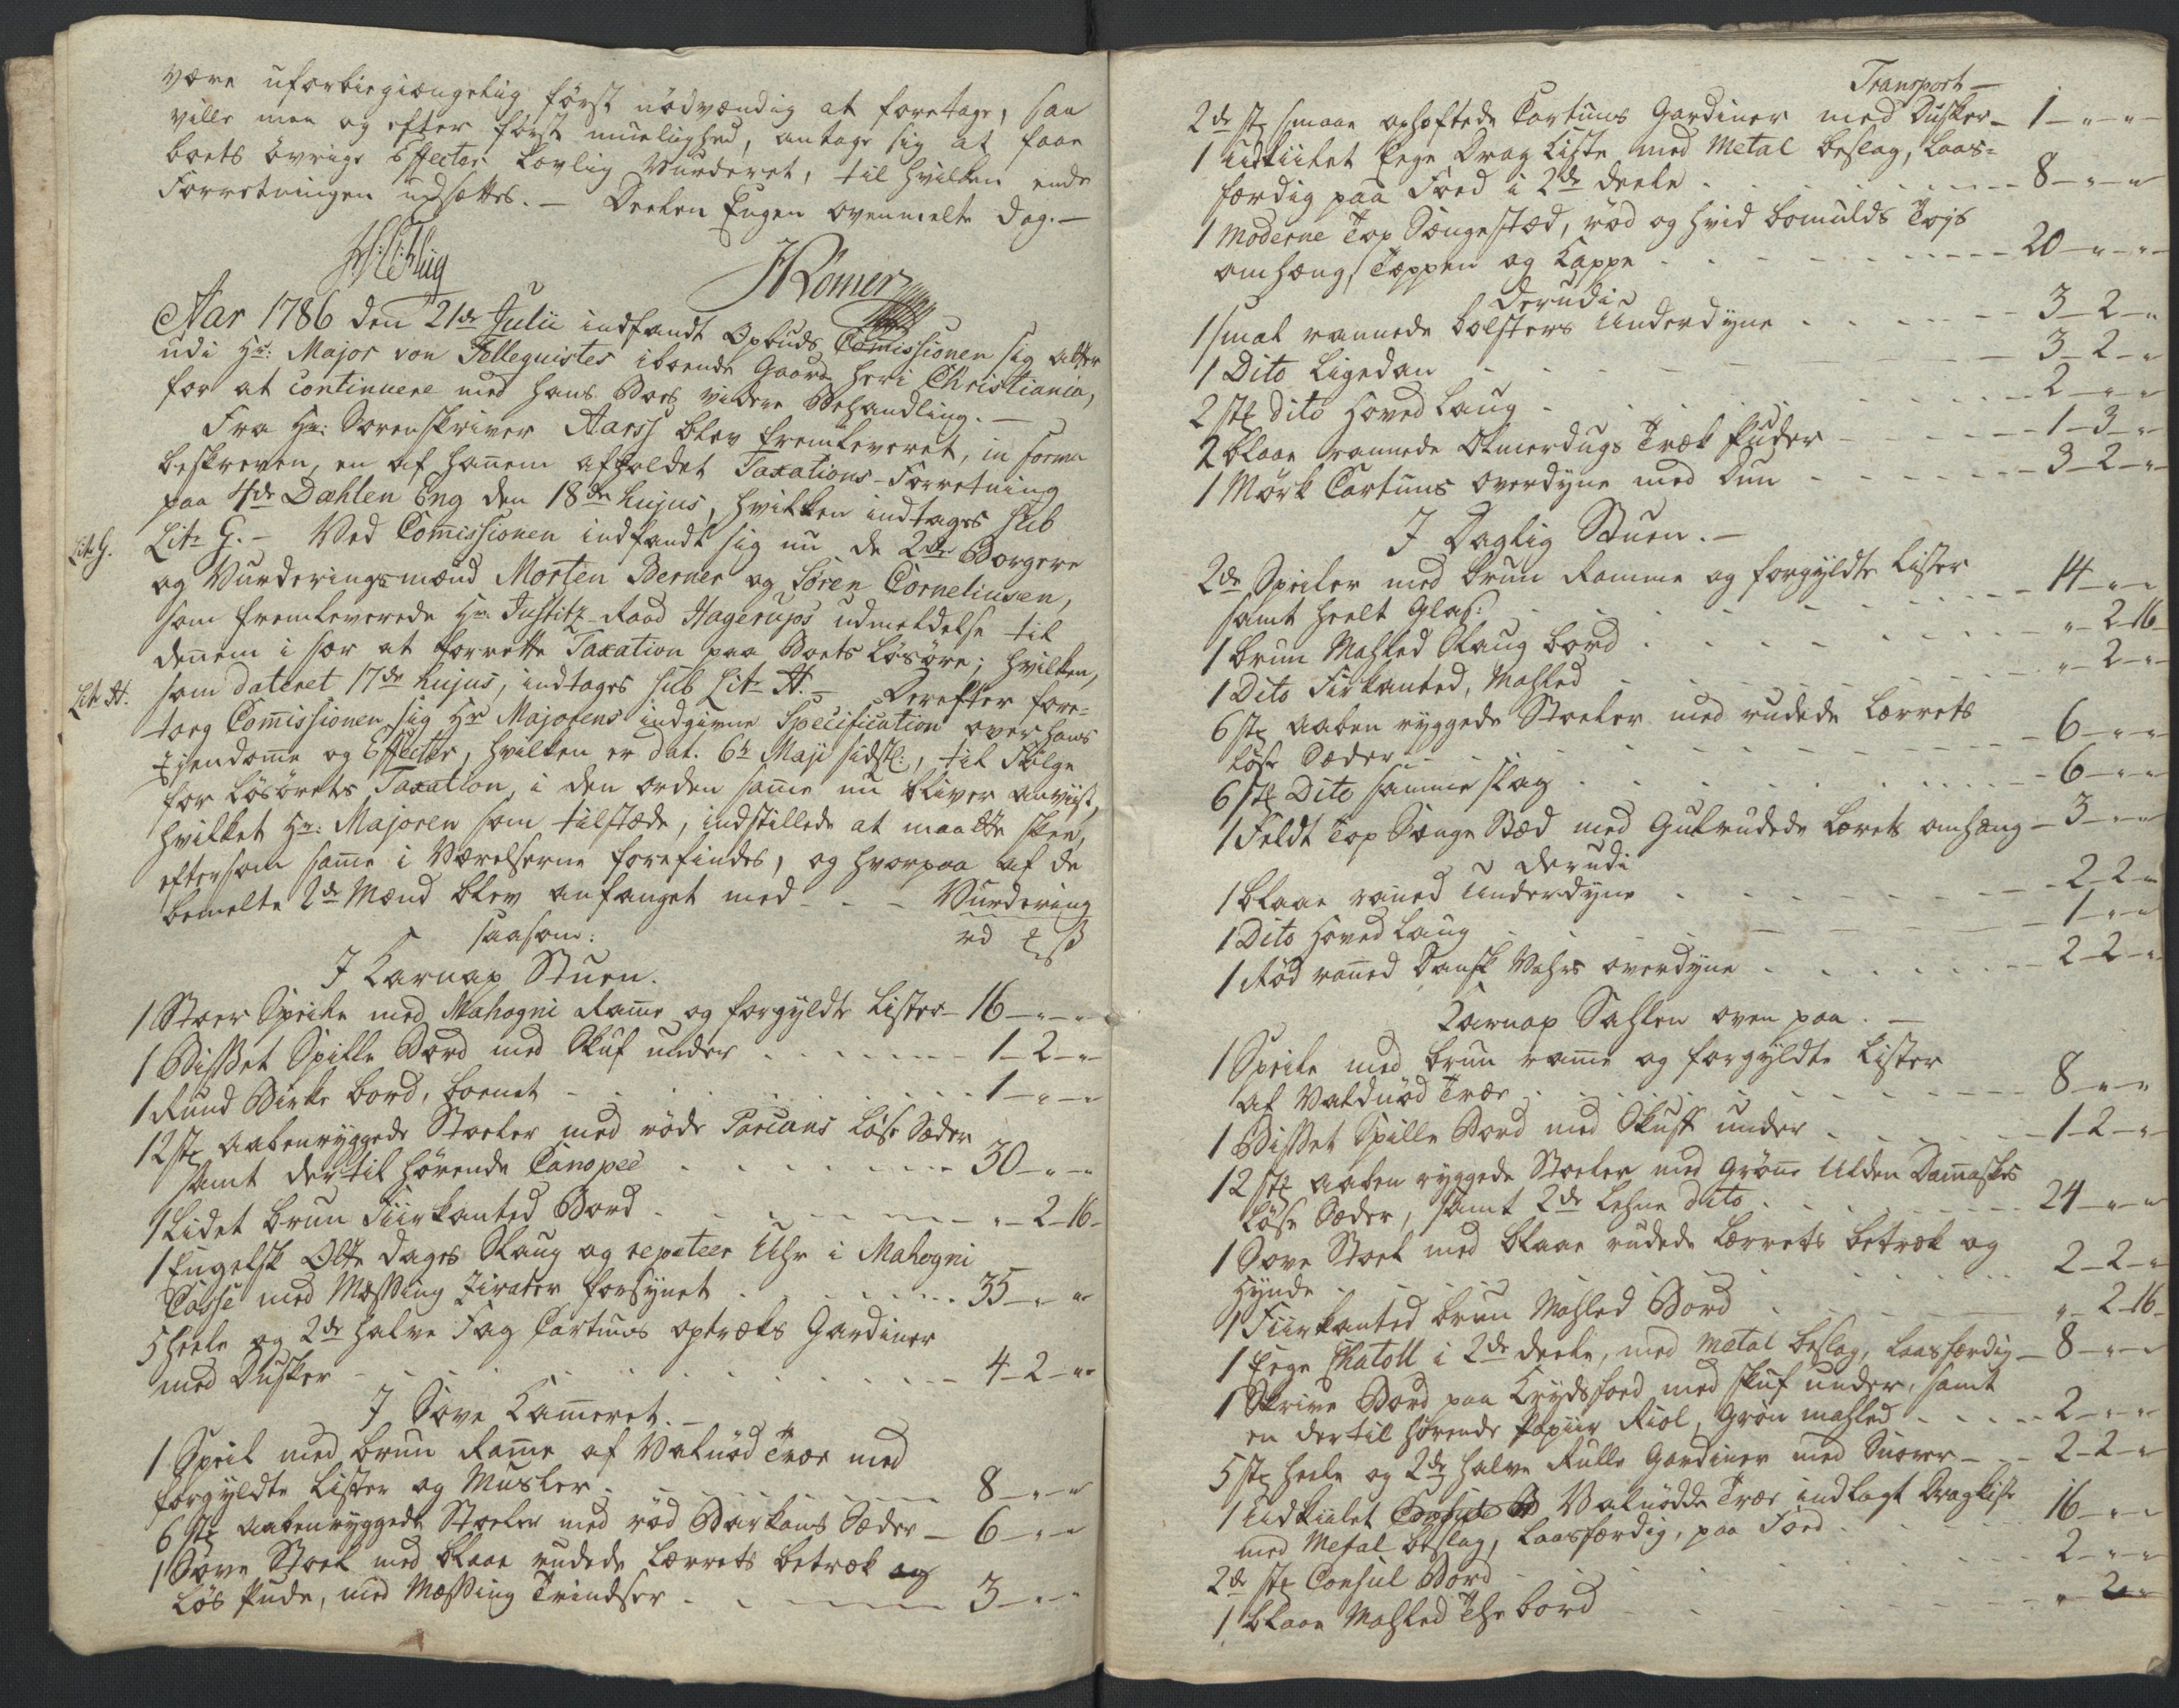 være uforbiegiængelig først nödvændig at foretage, saa
ville man og efter först muelighed, antage sig at faae
boets övrige Effecter Lovlig Vurderet, til hvilken ende
Forretningen udsættes. — Deelen Engen ovenmelte Dag. —
JRömer
Aar 1786 den 21de Julii indfandt Opbuds Comissionen sig atter
udi Hr: Major von Fellequistes iboende Gaard heri Christiania,
for at continuere med hans Boes videre Behandling. —
Fra Hr: Sorenskriver Aarss blev fremleveret, in forma
beskreven, en af hanem afholdet Taxations-Forretning
paa 4de Dæhlen Eng den 18de hujus, hvilken indtages sub
Litr. G. Litr G. — Ved Comissionen indfandt sig nu de 2de Borgere
og Vurderingsmænd Morten Berner og Sören Corneliusen,
som fremleverede Hr. Justitz-Raad Hagerups udmeldelse til
denem i sær at forrette Taxation paa Boets Lösöre; hvilken,
Litr. H. som dateret 17de hujus, indtages sub Litr H. — Derefter fore=
toeg Comissionen sig Hr Majorens indgivne Specification over hans
Ejendome og Effecter, hvilken er dat. 6te Maji sidstl:, til Fölge
for Lösörets Taxation, i den orden same nu bliver anviist,
hvilket Hr: Majoren som tilstæde, indstillede at maatte skee,
eftersom same i Værelserne forefindes, og hvorpaa af de
bemelte 2de Mænd blev anfanget med - - - Vurdering
saasom: rd ß
I Karnap Stuen.
1 Stoer Speile med Mahogni Rame og forgyldte Lister - 16 - " - "
1 Bisset Spille Bord med Skuf under - 1 - 2 - "
1 Rund Birke bord, boenet - 1 - " - "
12 stk aabenryggede Stoeler med röde Parcans Löse Sæder
samt dertil hörende Canapee - 30 - " - "
1 Lidet brun Fiirkanted Bord - " - 2 - 16 -
1 Engelsk Otte Dages Slaug og repeteer Uhr i Mahogni
Casse med Messing Zirater forsynet - 35 - " - "
5 heele og 2de halve Fag Cartuns optræks Gardiner
med Dusker - 4 - 2 - "
I Sove Kameret. —
1 Speil med brun Rame af Valnöd Træe med
forgyldte Lister og Musler - 8 - " - "
6 stk aabenryggede Stoeler med röd Barkans Sæder - 6 - " - "
1 Sove Stoel med blaae rudede Lærrets betræk og
Lös Pude, med Messing Trindser - 3 - " - "
Transport —
2de stk smaae ophæftede Cartuns Gardiner med Dusker - 1 - " - "
1 udkiilet Eege Drag Kiste med Metal beslag, Laas=
færdig paa Foed i 2de deele - 8 - " - "
1 Moderne Top Sengestæd, röd og hvid bomulds Töjs
omhæng, Tæppen og Kappe - 20 - " - "
derudi
1 smal rannede bolsters Underdyne - 3 - 2 - "
1 Dito Ligedan - 3 - 2 - "
2 stk dito Hoved Laug - 2 - " - "
2 blaae rannede Olmerdugs Træk Puder - 1 - 3 - "
1 Mörk Cartuns Overdyne med Dun - 3 - 2 - "
I Daglig Stuen. —
2de Speiler med brun Ramme og forgyldte Lister
samt heelt Glas: - 14 - " - "
1 brun Mahled Slaug bord - " - 2 - 16
1 Dito Firkanted, Mahled - " - 2 - "
6 stk aaben ryggede Stoeler med rudede Lærrets
Löse Sæder - 6 - " - "
6 stk Dito samme slag - 6 - " - "
1 Feldt Top Senge Stæd med Gulrudede Lerets omhæng - 3 - " - "
derudi
1 blaae raned Underdyne - 2 - 2 - "
1 Dito Hoved Laug - 1 - " - "
1 Röd raned Dansk Vahrs overdyne - 2 - 2 - "
Karnap Sahlen oven paa. —
1 Speile med brun rame og forgyldte Lister
af Valdnöd Træe - 8 - " - "
1 Bisset Spille Bord med Skuff under - 1 - 2 - "
12 stk aaben ryggede Stoeler med Gröne Ulden Damaskes
Löse Sæder, samt 2de Lehne dito - 24 - " - "
1 Sove Stoel med blaae rudede Lærrets betræk og
Hynde - 2 - 2 - "
1 Fiirkanted brun Mahled Bord - " - 2 - 16 -
1 Eege Chatoll i 2de deele, med metal beslag, laasfærdig - 8 - " - "
1 Skrive Bord paa Krydsfoed med skuf under, samt
en dertil hörende Papiir Riol, Grön mahled - 2 - " - "
5 stk heele og 2de halve Rulle Gardiner med Snorer - 2 - 2 - "
1 Udkiilet Valnödde Træe indlagt Dragkiste
med Metal beslag, Laasfærdig, paa Foed - 16 - " - "
2de stk Consul Bord - 2 - " - "
1 blaae Mahled The bord - " - 2 - "